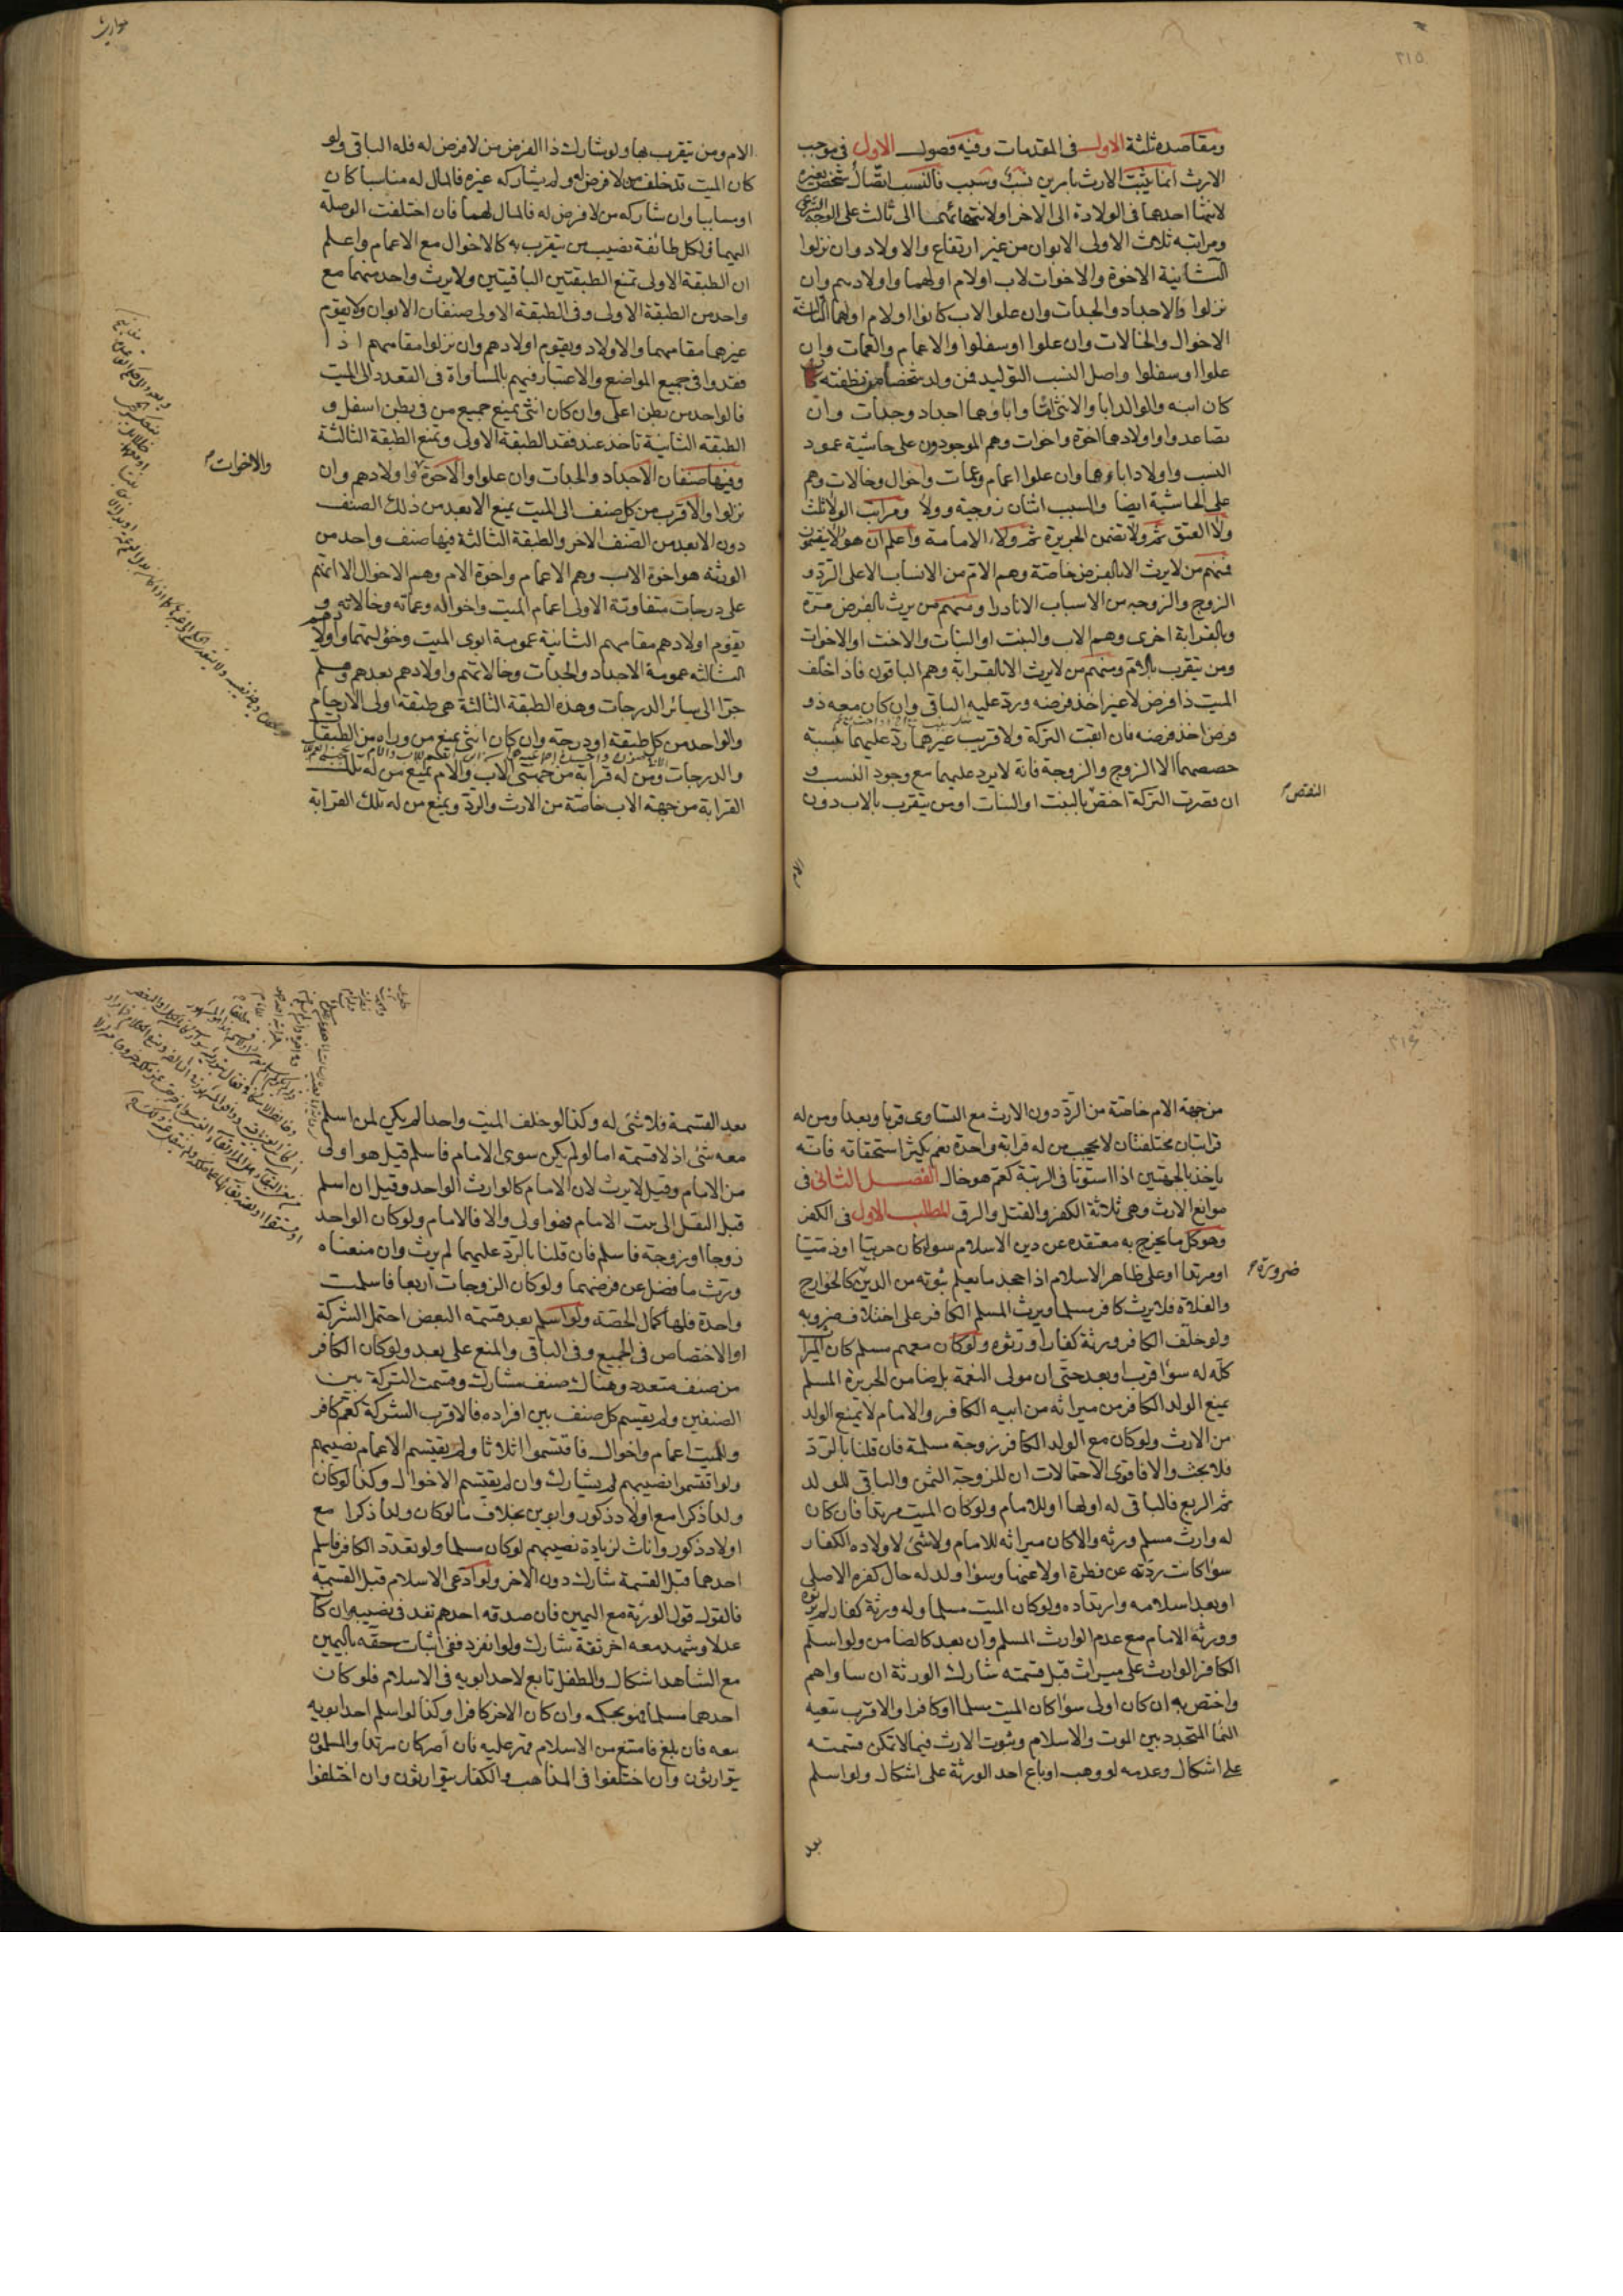 ومقاصده ثلثة الاول في المقدمات وفيه فصول الاول في موجب
الارث انما يثبت الارث بامرين نسب وسبب فالنسب اتصال شخص بغيره
لانتهاء احدهما في الولادة الى الاخر او لانتهائهما الى ثالث على الوجه الشرعي
ومراتبه ثلاث الاولى الابوان من غير ارتفاع والاولاد وان نزلوا
الثانية الاخوة والاخوات لاب او لام او لهما واولادهم وان
نزلوا والاجداد والجدات وان علوا لاب كانوا او لام او لهما الثالثة
الاخوال والخالات وان علوا او سفلوا والاعمام والعمات وان
علوا او سفلوا واصل النسب التوليد فمن ولد شخصا من نطفته
كان ابنه والوالد ابا والانثى اما واباؤهما اجداد وجدات وان
تصاعدوا واولادهما اخوة واخوات وهم الموجودون على حاشية عمود
النسب واولاد اباؤهما وان علوا اعمام وعمات واخوال وخالات وهم
على الحاشية ايضا والسبب اثنان زوجية وولاء ومراتب الولا ثلث
ولا العتق ثم ولا تضمن الجريرة ثم ولاء الامامة واعلم ان هؤلا ينقسمون
فمنهم من لا يرث الا بالفرض خاصة وهم الام من الانساب الا على الرد و
الزوج والزوجه من الاسباب الا نادرا ومنهم من يرث بالفرض مرة
وبالقرابة اخرى وهم الاب والبنت او البنات والاخت او الاخوات
ومن يتقرب بالام ومنهم من لا يرث الا بالقرابة وهم الباقون فاذا خلف
الميت ذا فرض لا غير اخذ فرضه ورد عليه الباقي وان كان معه ذو
فرض اخذ فرضه فان ابقت التركة ولا قريب غيرهما رد عليهما بنسبة
حصصهما الا الزوج والزوجة فانه لا يرد عليهما مع وجود النسب و
ان قصرت التركة اختص بالبنت او البنات او من يتقرب بالاب دون
النقص
موارث
الام ومن يتقرب بها ولو شارك ذا الفرض من لا فرض له فله الباقي ولو
كان الميت قد خلف من لا فرض له ولم يشاركه غيره فالمال له مناسبا كان
او مساببا وان شاركه من لا فرض له فالمال لهما فان اختلفت الوصلة
اليهما فلكل طائفة نصيب من يتقرب به كالاخوال مع الاعمام واعلم
ان الطبقة الاولى تمنع الطبقتين الباقيتين ولا يرث واحد منهما مع
واحد من الطبقة الاولى وفي الطبقة الاولى صنفان الابوان ولا يقوم
غيرهما مقامهما والاولاد ويقوم اولادهم وان نزلوا مقامهم اذا
فقدوا في جميع المواضع والاعتبار فيهم بالمساواة في القعدد الى الميت
فالواحد من بطن اعلى وان كان انثى يمنع جميع من في بطن اسفل و
الطبقه الثانية تاخذ عند فقد الطبقة الاولى وتمنع الطبقة الثالثة
وفيها صنفان الاجداد والجدات وان علوا والاخوة واولادهم وان
والاخوات
نزلوا والاقرب من كل صنف الى الميت يمنع الابعد من ذلك الصنف
دون الابعد من الصنف الاخر والطبقة الثالثة فيها صنف واحد من
الورثه هو اخوة الاب وهم الاعمام واخوة الام وهم الاخوال الا انهم
على درجات متفاوتة الاولى اعمام الميت واخواله وعماته وخالاته و
يقوم اولادهم مقامهم الثانية عمومة ابوى الميت وخؤلتهما واولادهم
الثالثه عمومة الاجداد والجدات وخالاتهم واولادهم بعدهم وهلم
جرا الى سائر الدرجات وهذه الطبقة الثالثة هي طبقة اولى الارحام
والواحد من كل طبقة او درجة وان كان انثى يمنع من وراه من الطبقات
والدرجات ومن له قرابة من جهتى الاب والام يمنع من له تلك
القرابة من جهة الاب خاصة من الارث والرد ويمنع من له تلك القرابة
من جهة الام خاصة من الرد دون الارث مع التساوى قربا وبعدا ومن له
قرابتان مختلفتان لا يحجب من له قرابة واحدة نعم يكثر استحقاقه فانه
ياخذ بالجهتين اذا استوتا في الرتبة كعم هو خال الفصل الثاني في
موانع الارث وهي ثلاثة الكفر والقتل والرق المطلب الاول في الكفر
وهو كل ما يخرج به معتقده عن دين الاسلام سوا كان حربيا او ذميا
او مرتدا او على ظاهر الاسلام اذا جحد ما يعلم ثبوته من الدين كالخوارج
ضرورة
والغلاة فلا يرث كافر مسلما ويرث المسلم الكافر على اختلاف ضروبه
ولو خلف الكافر ورثة كفارا ورثوه ولو كان معهم مسلم كان الميراث
كله له سوا قرب او بعد حتى ان مولى النعمة بل ضامن الجريرة المسلم
يمنع الولد الكافر من ميراثه من ابيه الكافر والامام لا يمنع الولد
من الارث ولو كان مع الولد الكافر زوجة مسلمة فان قلنا بالرد
فلا بحث والا فاقوى الاحتمالات ان للزوجة الثمن والباقي للولد
ثم الربع فالباقي له او لها او للامام ولو كان الميت مرتدا فان كان
له وارث مسلم ورثه والا كان ميراثه للامام ولا شئ لاولاده الكفار
سوا كانت ردته عن فطرة او لا عنها وسوا ولد له حال كفره الاصلي
او بعد اسلامه وارتداده ولو كان الميت مسلما وله ورثة كفار لم يرثوه
وورثه الامام مع عدم الوارث المسلم وان بعد كالضامن ولو اسلم
الكافر الوارث على ميراث قبل قسمته شارك الورثة ان ساواهم
واختص به ان كان اولى سوا كان الميت مسلما او كافرا والاقرب تبعية
النما المتجدد بين الموت والاسلام وثبوت الارث فيما لا تمكن قسمته
على اشكال وعدمه لو وهب او باع احد الورثة على اشكال ولو اسلم
بعد
بعد القسمة فلا شئ له وكذا لو خلف الميت واحدا لم يكن لمن اسلم
معه شئ اذ لا قسمة اما لو لم يكن سوى الامام فاسلم قيل هو اولى
من الامام وقيل لا يرث لان الامام كالوارث الواحد وقيل ان اسلم
قبل النقل الى بيت الامام فهو اولى والا فالامام ولو كان الواحد
زوجا او زوجة فاسلم فان قلنا بالرد عليهما لم يرث وان منعناه
ورث ما فضل عن فرضهما ولو كان الزوجات اربعا فاسلمت
واحدة فلها كمال الحصة ولو اسلم بعد قسمة البعض احتمل الشركة
او الاختصاص في الجميع وفي الباقي والمنع على بعد ولو كان الكافر
من صنف متعدد وهناك صنف مشارك وقسمت التركة بين
الصنفين ولم يقسم كل صنف بين افراده فالاقرب الشركة كعم كافر
وللميت اعمام واخوال فاقتسموا اثلاثا ولم يقتسم الاعمام نصيبهم
ولو اقتسموا نصيبهم لم يشارك وان لم يقتسم الاخوال وكذا لو كان
ولدا ذكرا مع اولاد ذكور وابوين بخلاف ما لو كان ولدا ذكرا مع
اولاد ذكور واناث لزيادة نصيبهم لو كان مسلما ولو تعدد الكافر فاسلم
احدهما قبل القسمة شارك دون الاخر ولو ادعى الاسلام قبل القسمة
فالقول قول الورثة مع اليمين فان صدقه احدهم نفذ في نصيبه ان كان
عدلا وشهد معه اخر ثقة شارك ولو انفرد ففي اثبات حقه باليمين
مع الشاهد اشكال والطفل تابع لاحد ابويه في الاسلام فلو كان
احدهما مسلما فهو بحكمه وان كان الاخر كافرا وكذا لو اسلم احد ابويه
تبعه فان بلغ فامتنع من الاسلام قهر عليه فان اصر كان مرتدا والمسلمون
يتوارثون وان اختلفوا في المذاهب والكفار يتوارثون وان اختلفوا